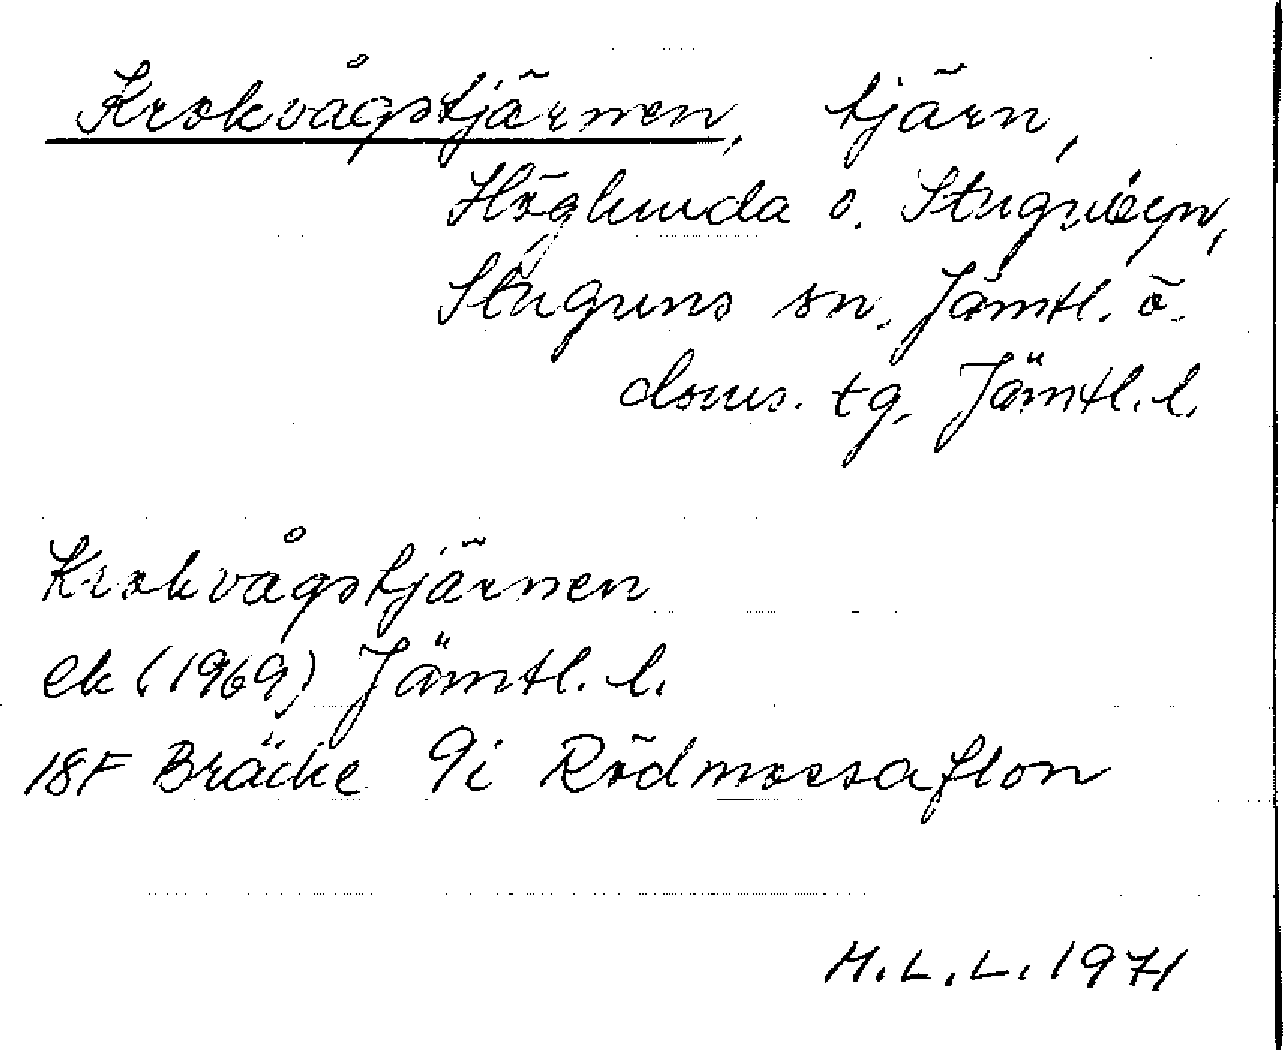 Krokvågstjärnen, tjärn,
Höglunda o. Stugubyn,
Staguns sn. Jämtl. ö.
doms. tg. Jämtl. l.
Krokvågstjärnen
ek (1969) Jämtl. l.
18F Bräcke 9i Rödmossaflon
M.L.L. 1971